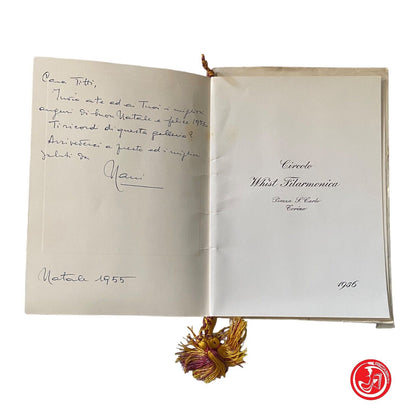 Cara Titti,
Invio a te ed ai Tuoi i migliori
auguri di buon Natale e felice 1956
Ti ricordi di questa galleria?
Arrivederci a presto ed i migliori
saluti da
Natale 1955
Circolo
Whist Filarmonica
Piazza S. Carlo
Torino
1956